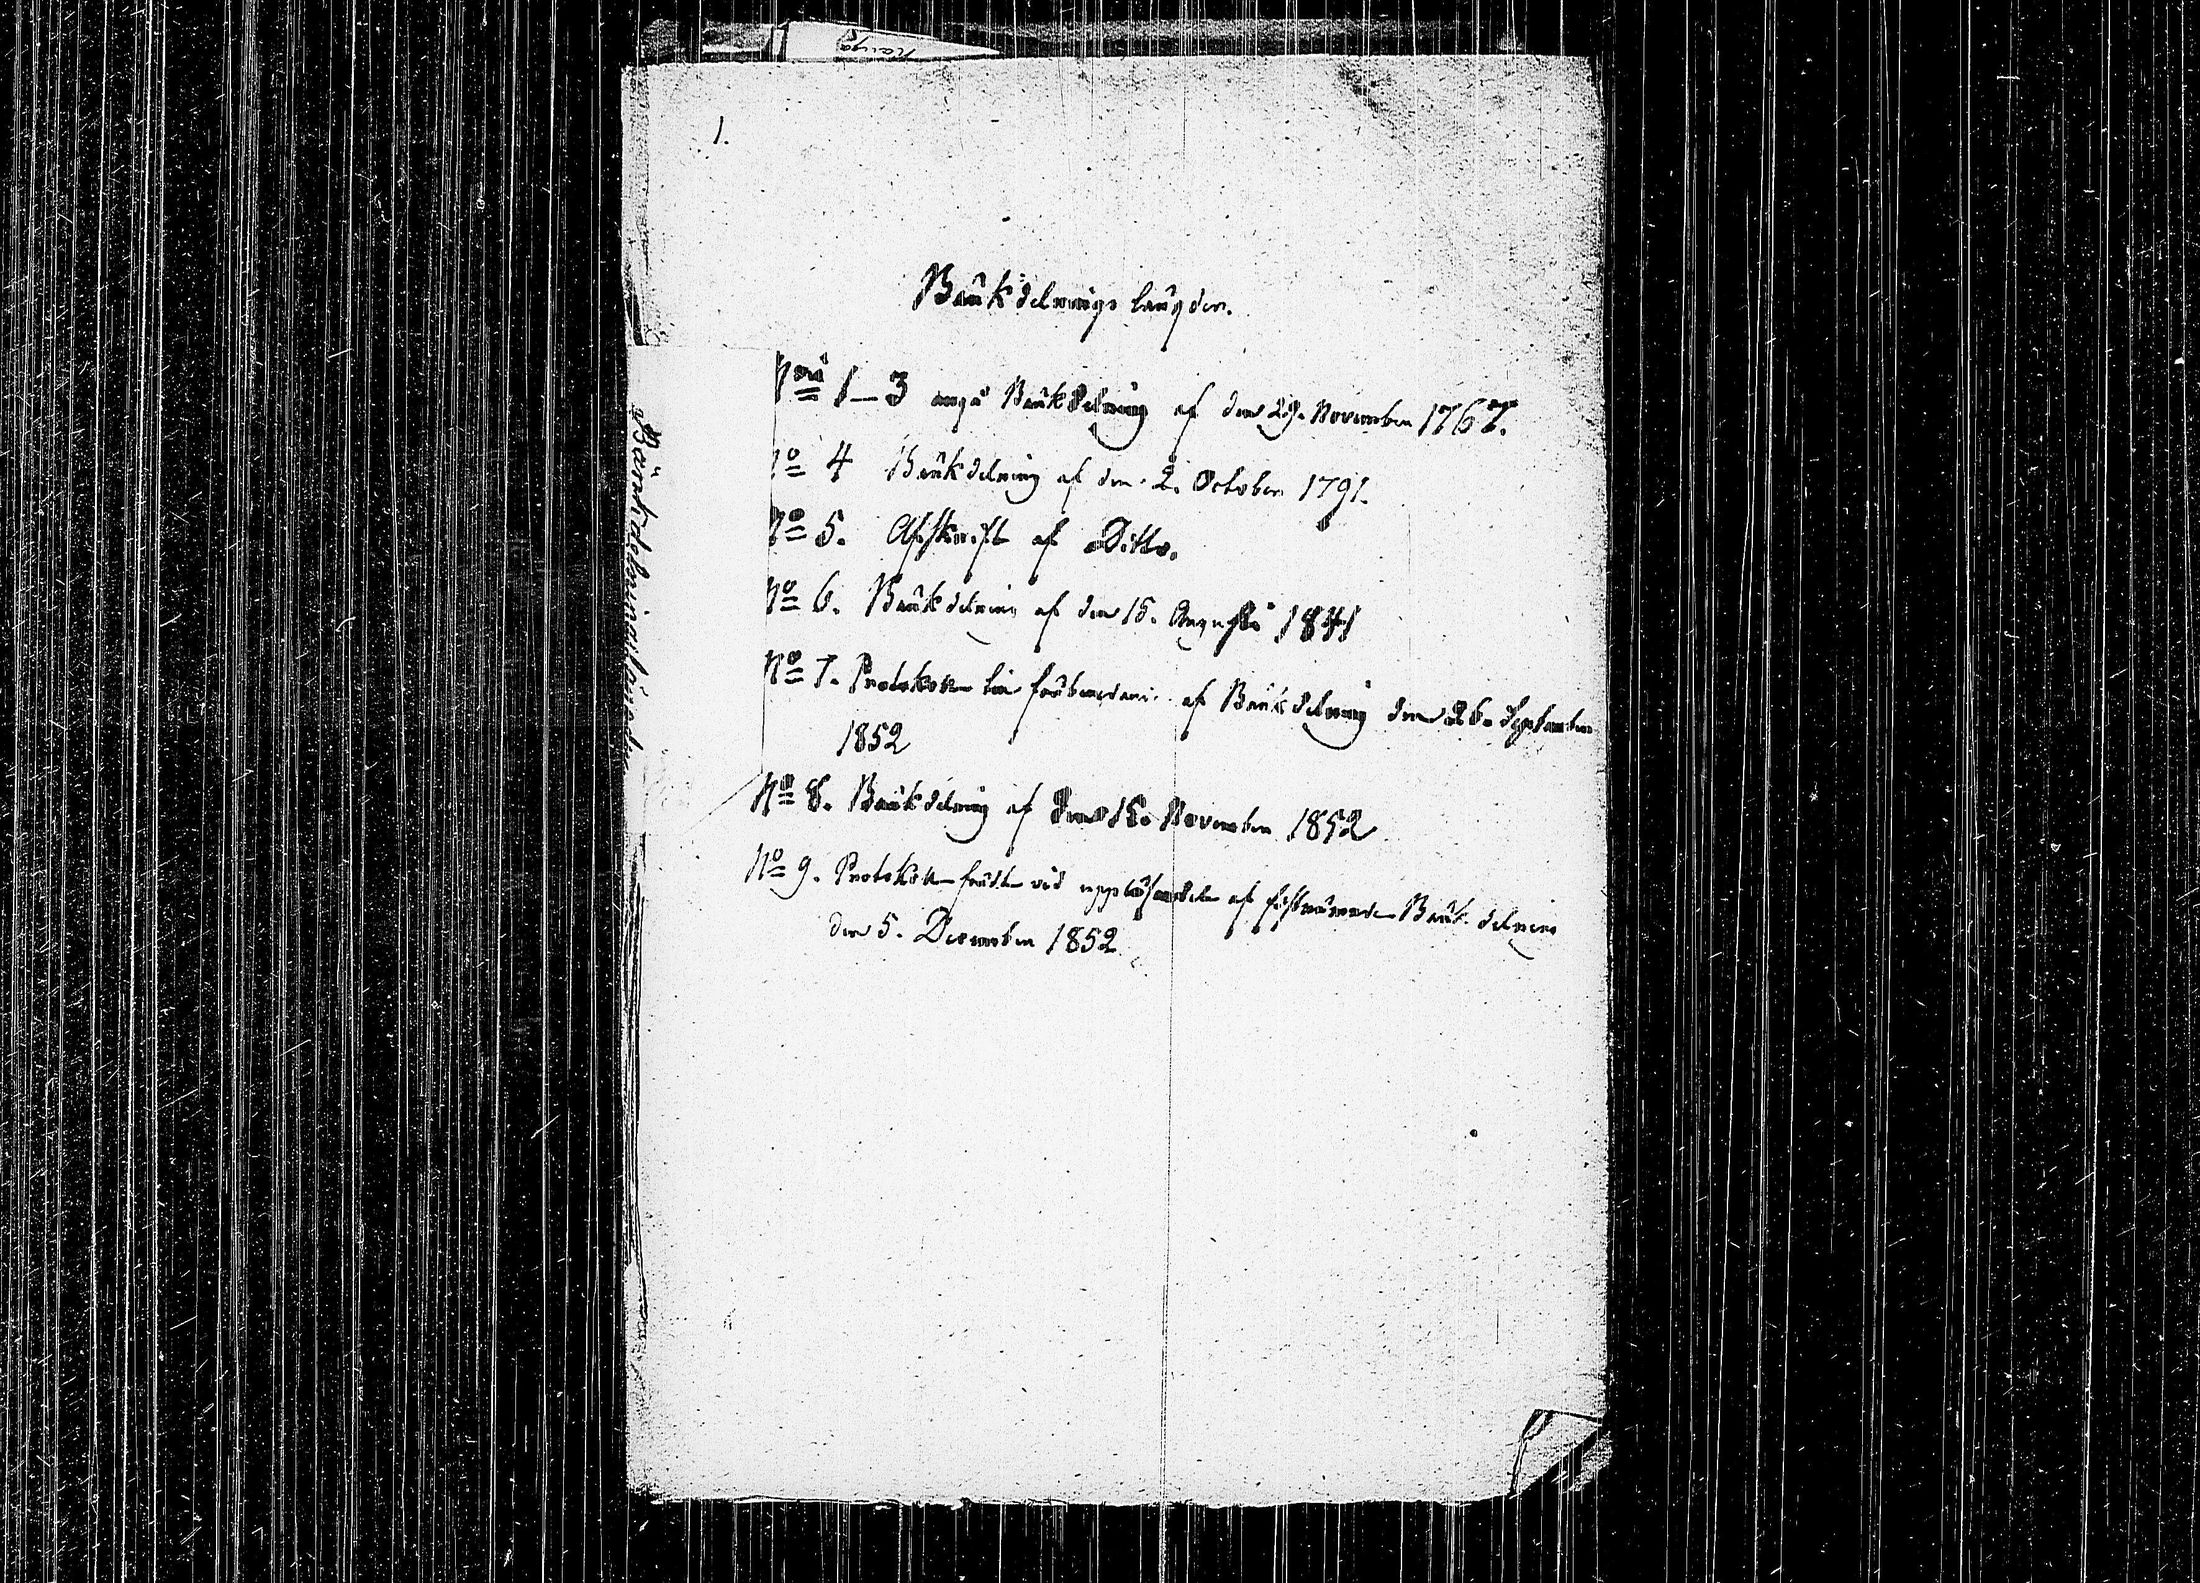 1.
Bänkdelnings längder.
Nris 1–3 angå Bänkdelning af den 29. November 1767.
No 4 Bänkdelning af den 2. October 1791.
No 5. Afskrift af Ditto.
No 6. Bänkdelning af den 15. Augusti 1841
No 7. Protokoll för förberedande af Bänkdelning den 26. September
1852
No 8. Bänkdelning af den 15. November 1852
No 9. Protokoll fördt vid uppläsandet af sistnämnde Bänkdelning
den 5. December 1852.
Bänkdelningslängder